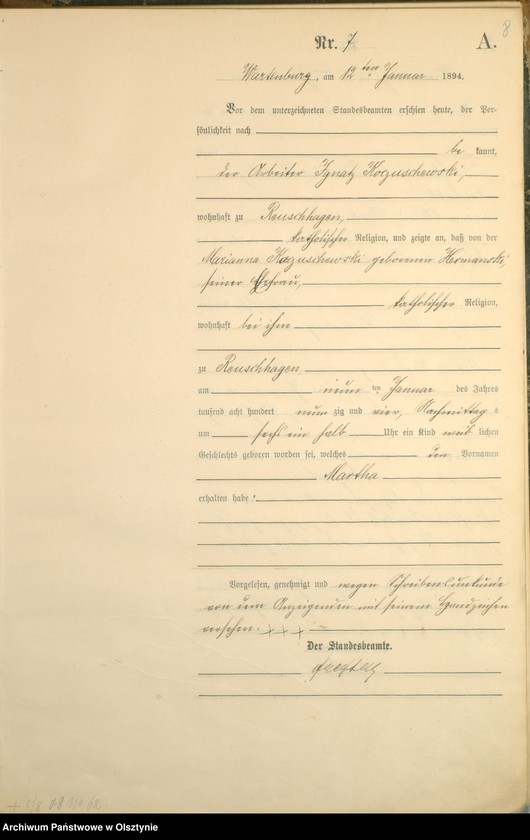 8
Nr. 7 A.
Wartenburg, am 12 ten Januar 1894.
Vor dem unterzeichneten Standesbeamten erschien heute, der Per-
sönlichkeit nach
be kannt,
der Arbeiter Ignatz Koguschewski,
wohnhaft zu Reuschhagen,
katholischer Religion, und zeigte an, daß von der
Marianna Koguschewski geborenen Hermanski,
seiner Ehefrau,
katholischer Religion,
wohnhaft bei ihm
zu Reuschhagen
am neun ten Januar des Jahres
tausend acht hundert neun zig und vier, Nachmittag s
um sechs ein halb Uhr ein Kind weib lichen
Geschlechts geboren worden sei, welches den Vornamen
Martha
erhalten habe
Vorgelesen, genehmigt und wegen Schreibensunkunde
von dem Anzeigenden mit seinem Handzeichen
versehen. +++
Der Standesbeamte.
Archiwum Państwowe w Olsztynie